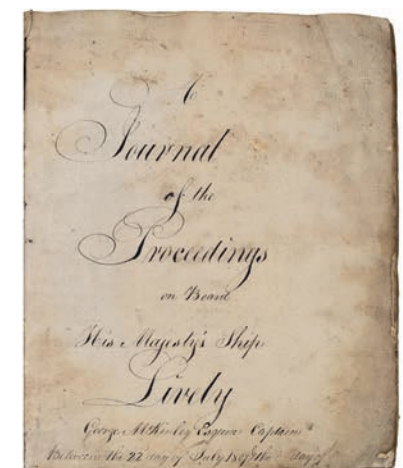 A
Journal
of the
Proceedings
on Board
His Majesty's Ship
Lively
George McKinley Esquire Captain
Between the 22 day of July 180 the day of